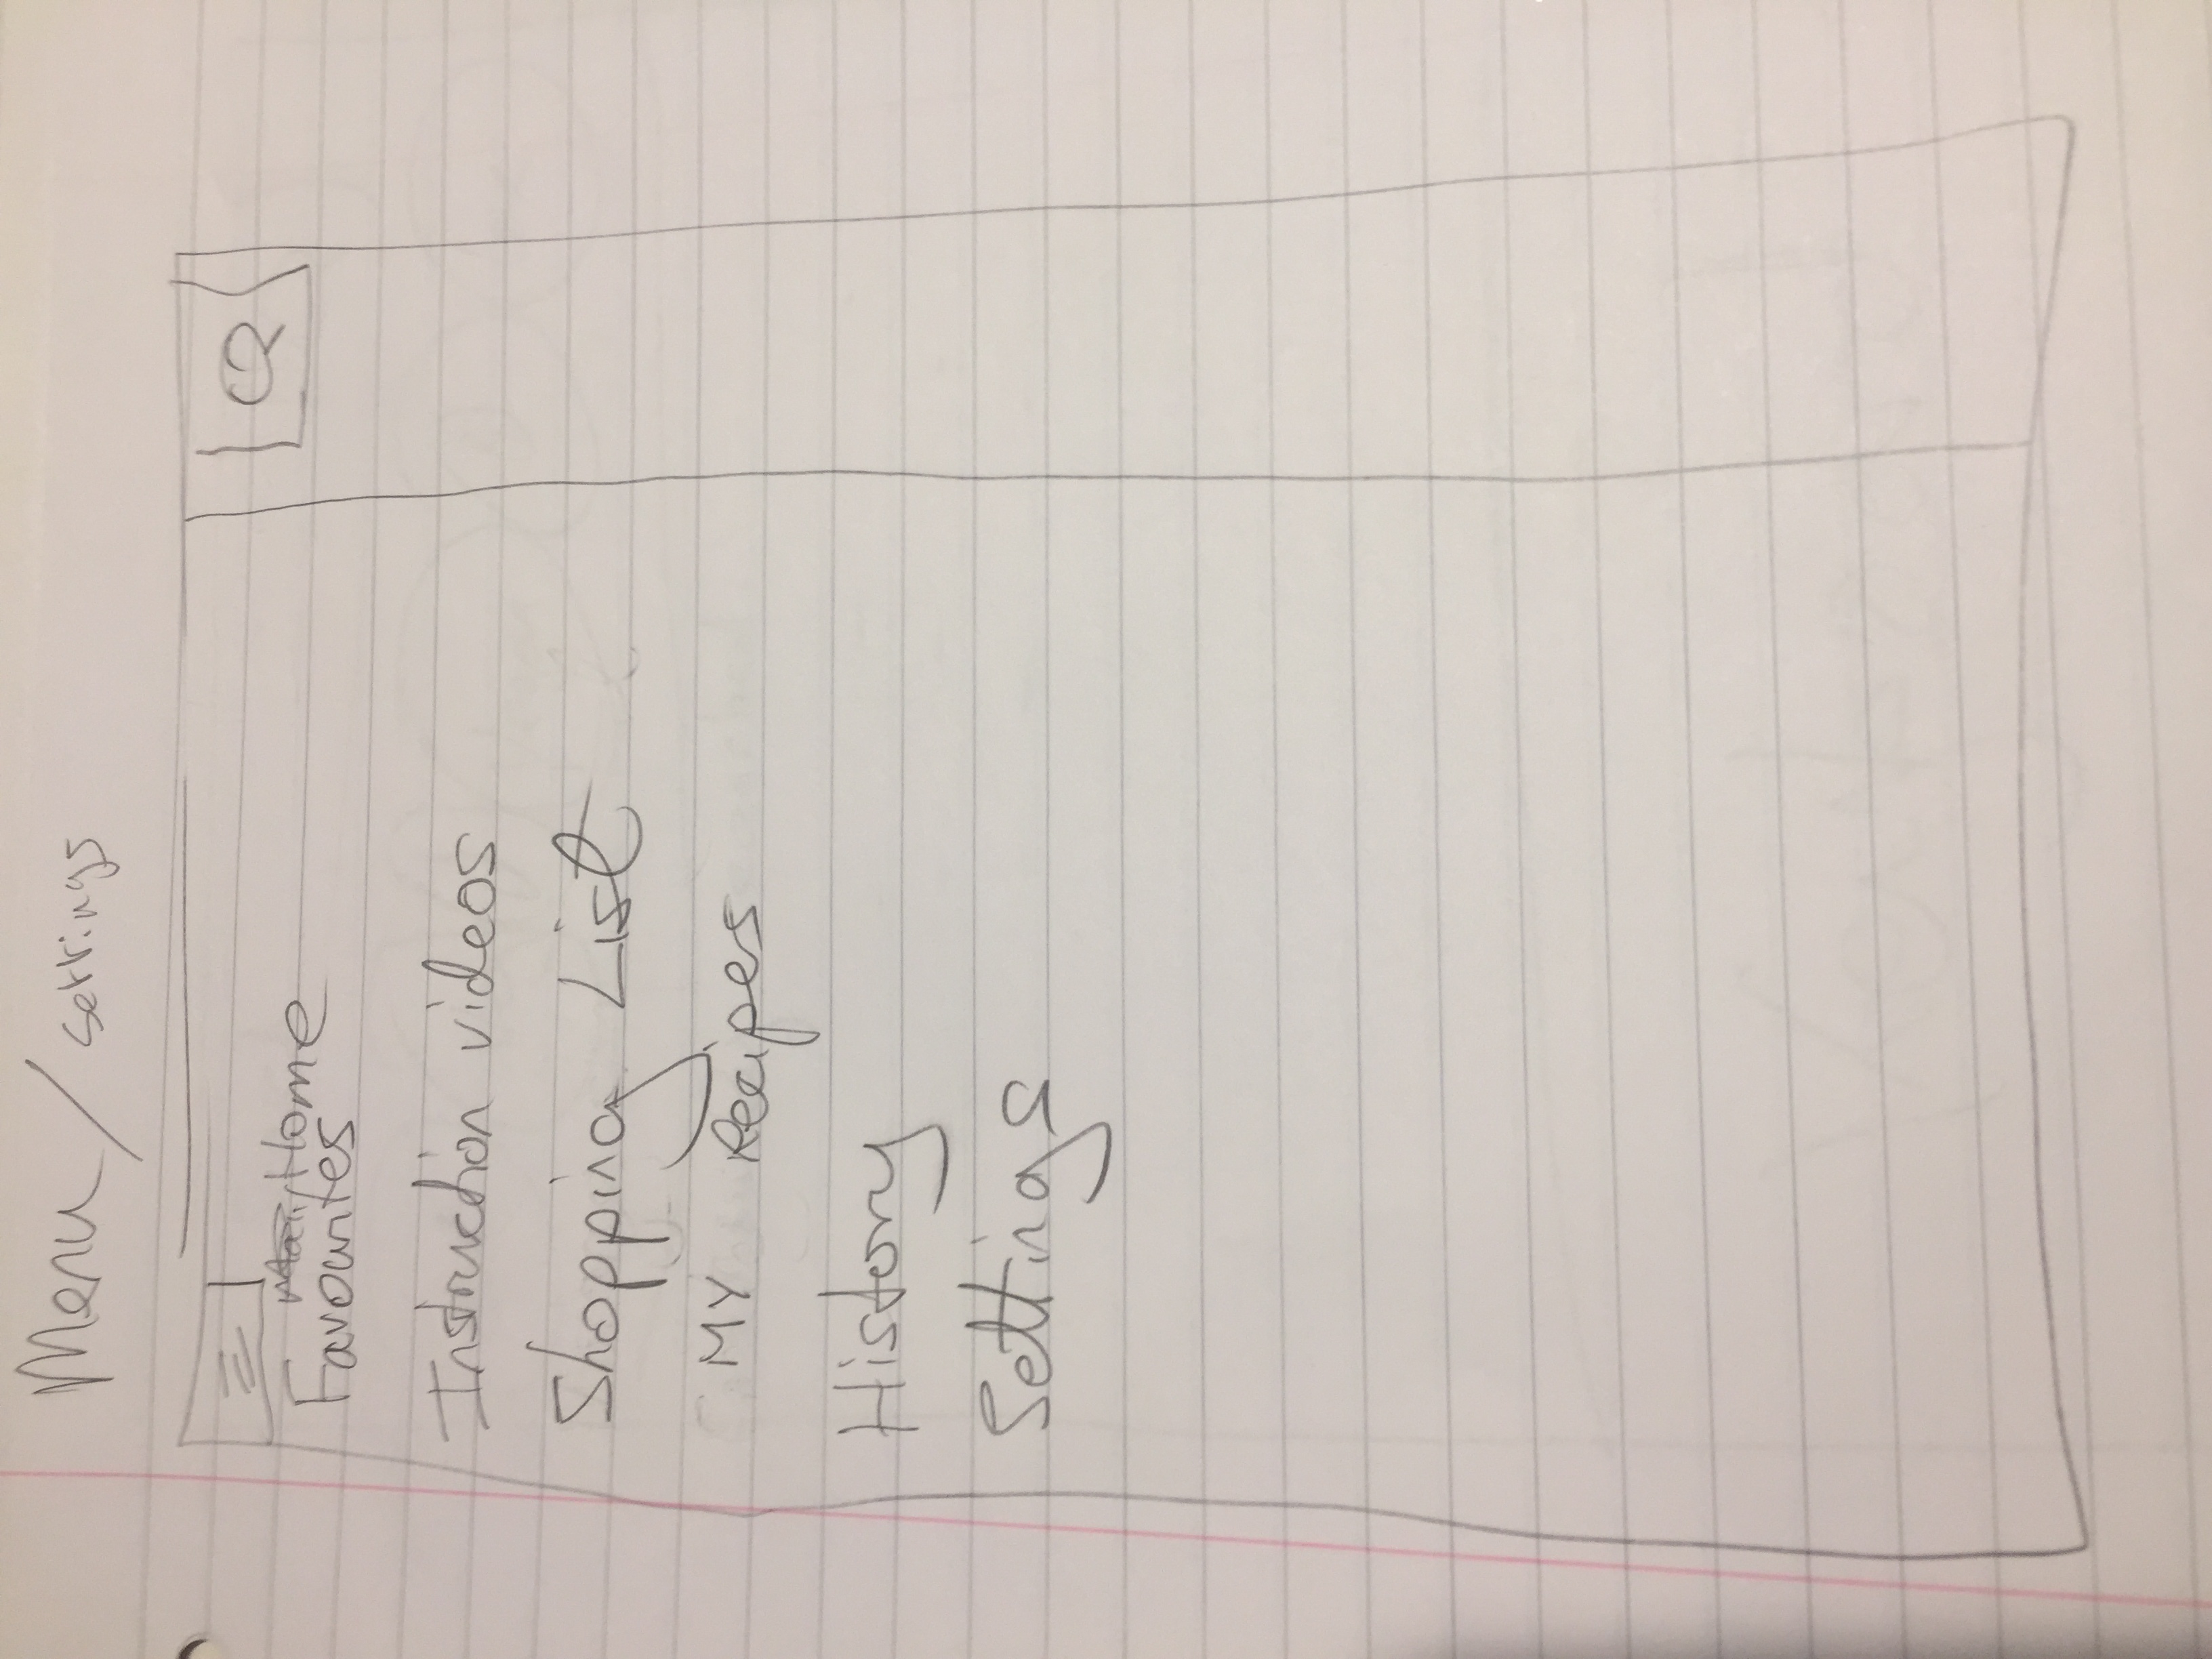 Menu / settings
Home
Favourites
Instruction videos
Shopping List
MY Recipes
History
Settings